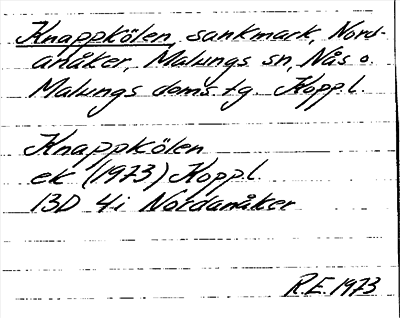 Knappkölen, sankmark, Nord-
anåker, Malungs sn, Nås o.
Malungs doms.tg. Kopp.l.
Knappkölen
ek (1973) Kopp.l
13D 4i Nordanåker
R.E. 1973